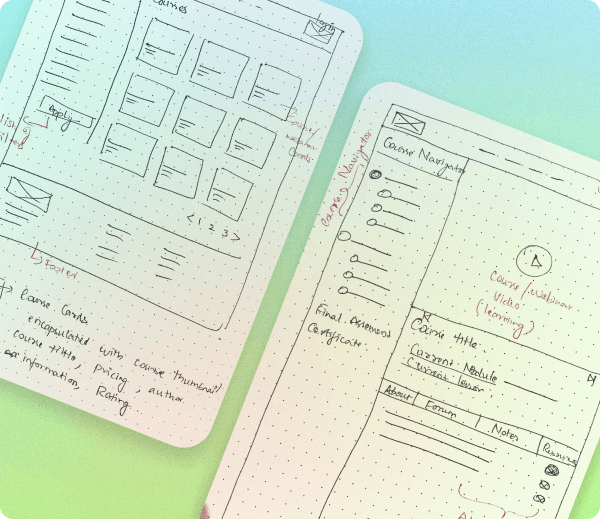 Courses
Login
Apply
list
Course/
webinar
Cards
< 1 2 3 >
Footer
Course Cards
encapsulated with course thumbnail
course title, pricing, author
information, Rating.
Course Navigator
Course Navigator
Course/webinar
Video
(learning)
Final Assesment
Certificate
Course title:
Current Module
Current
About
Forum
Notes